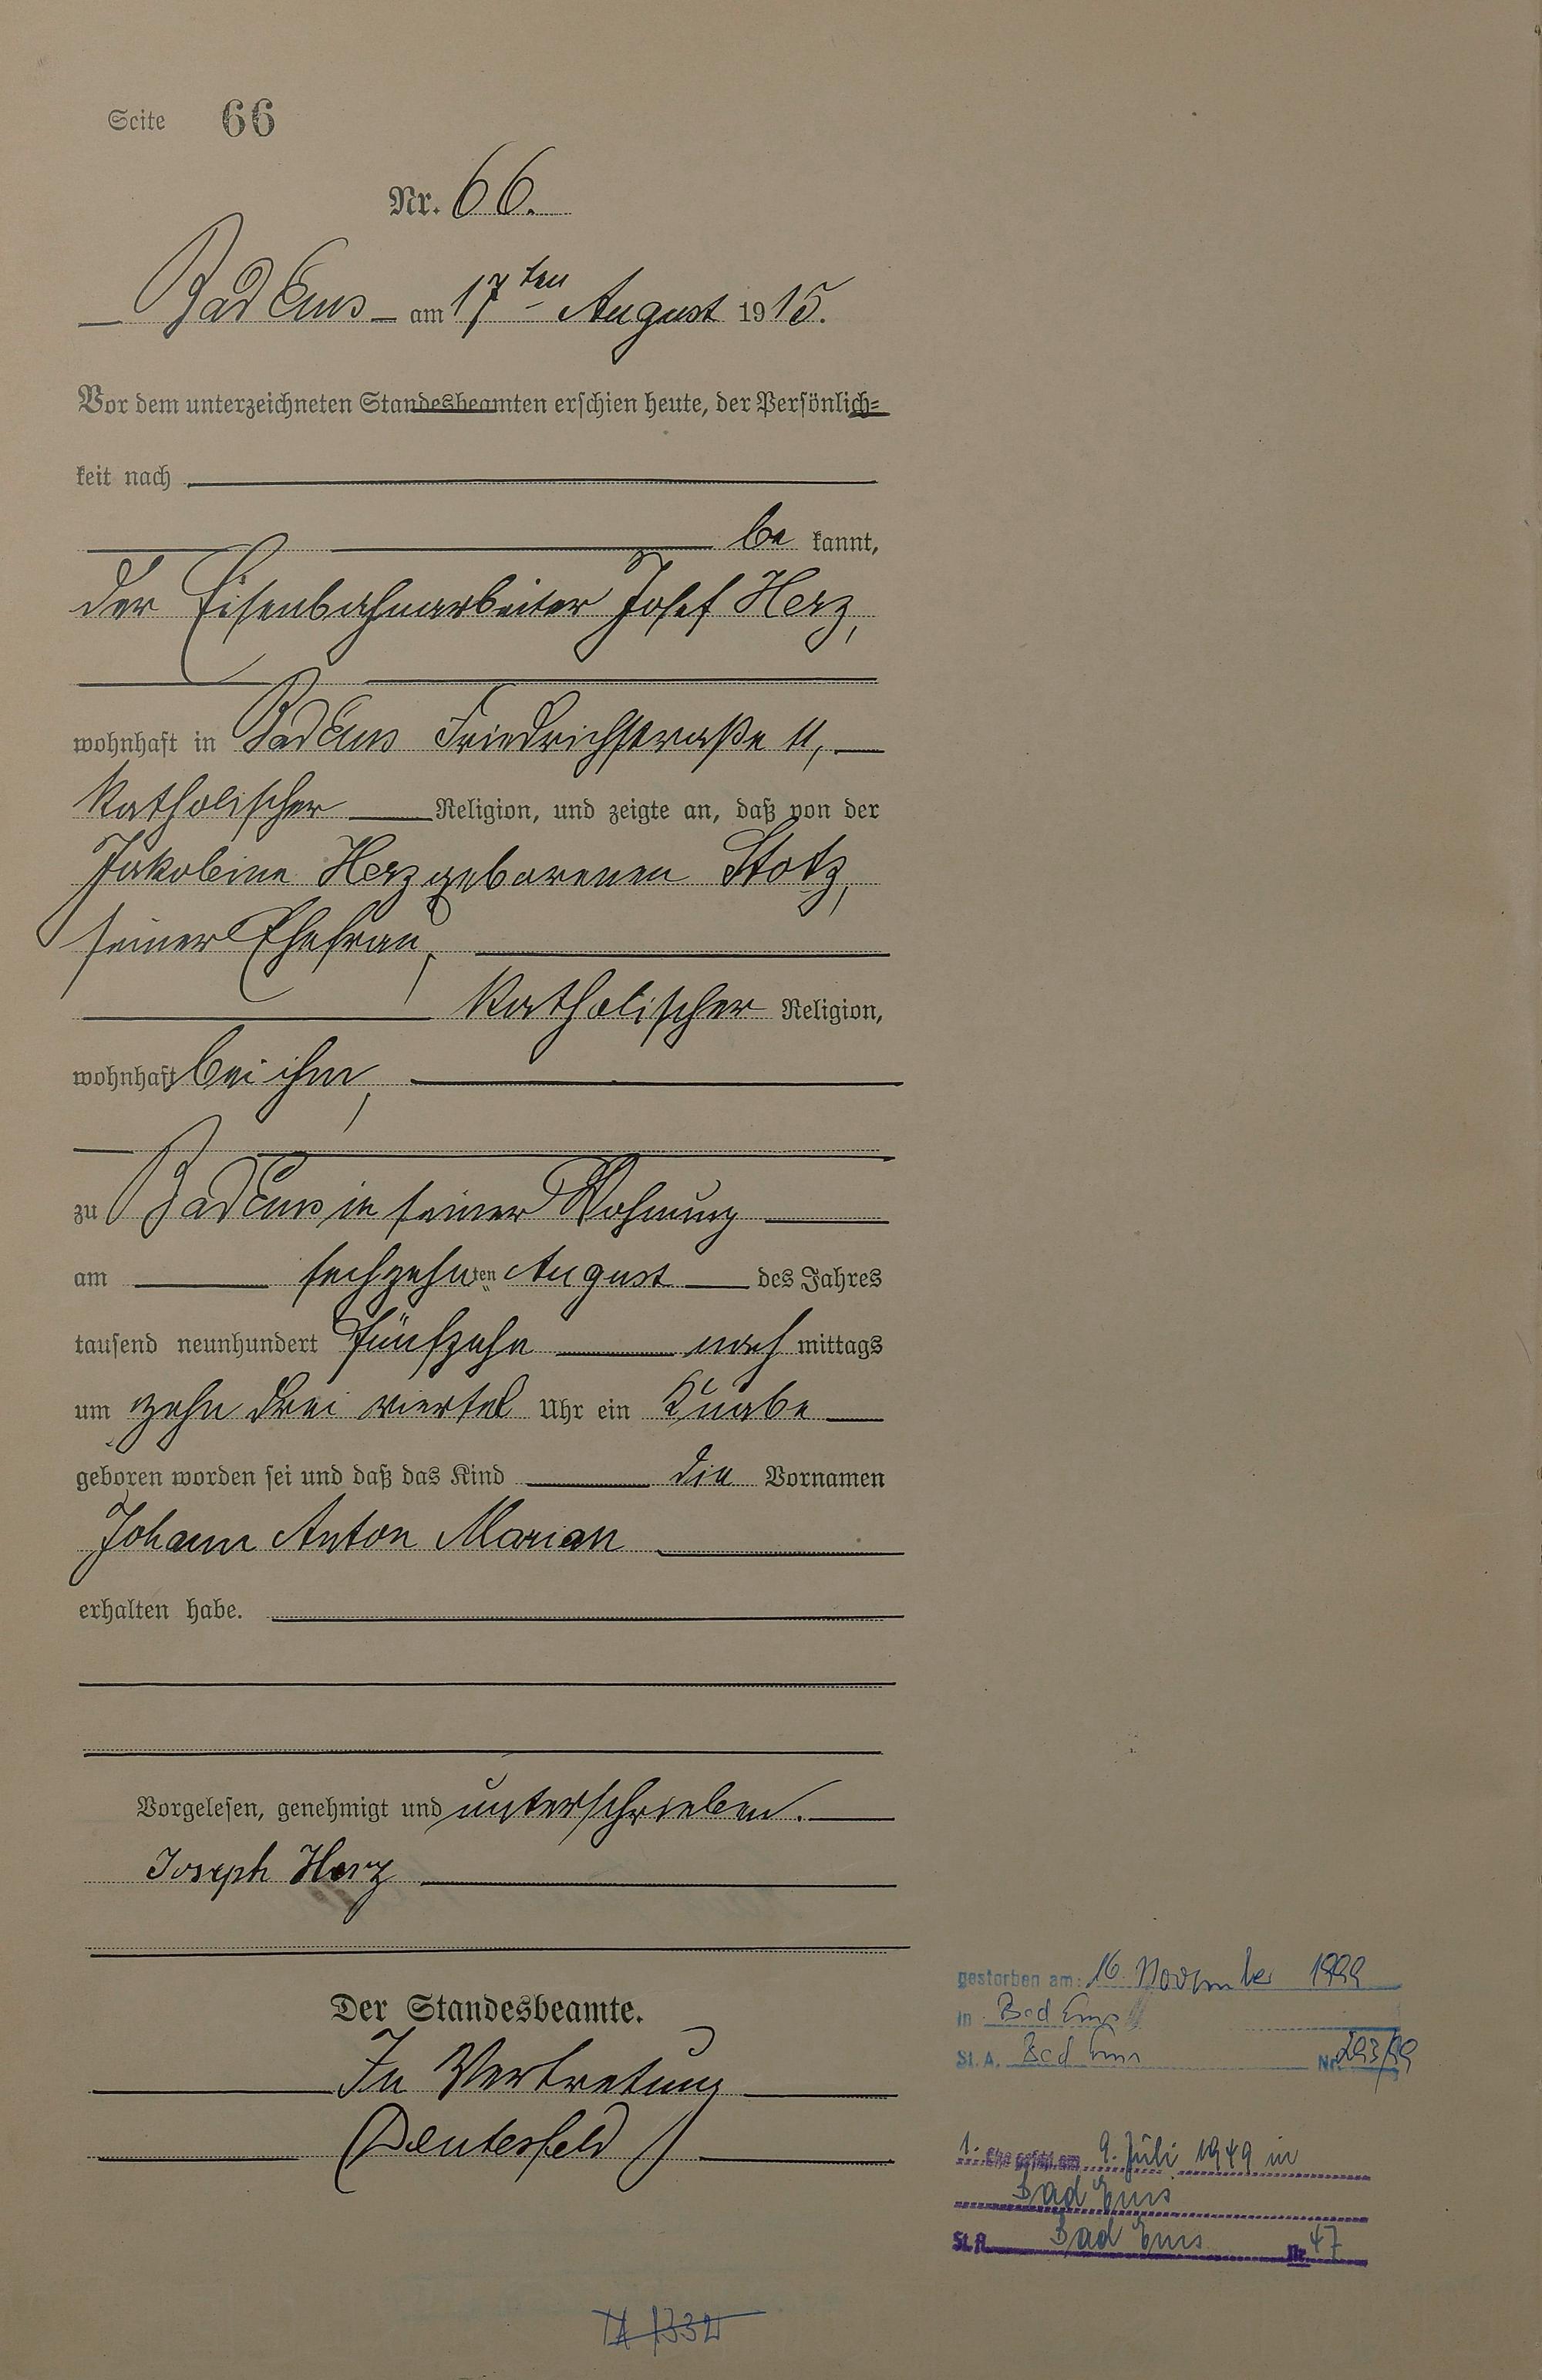 Seite 66
Nr. 66.
Bad Ems am 17ten August 1915.
Vor dem unterzeichneten Standesbeamten erschien heute, der Persönlich=
keit nach
be kannt,
der Eisenbahnarbeiter Josef Herz,
wohnhaft in Bad Ems Friedrichstraße 11,
katholischer Religion, und zeigte an, daß von der
Jakobine Herz geborenen Stotz,
seiner Ehefrau,
katholischer Religion,
wohnhaft bei ihm,
zu Bad Ems in seiner Wohnung
am sechzehnten August des Jahres
tausend neunhundert fünfzehn nach mittags
um zehn drei viertel Uhr ein Knabe
geboren worden sei und daß das Kind die Vornamen
Johann Anton Marian
erhalten habe.
Vorgelesen, genehmigt und unterschrieben.
Joseph Herz
Der Standesbeamte.
In Vertretung
Deutesfeld
gestorben am: 16. November 1999
in Bad Ems
St. A. Bad Ems Nr. 293/99
1. Ehe geschl. am 9. Juli 1949 in
Bad Ems
St. A. Bad Ems Nr. 47
1332